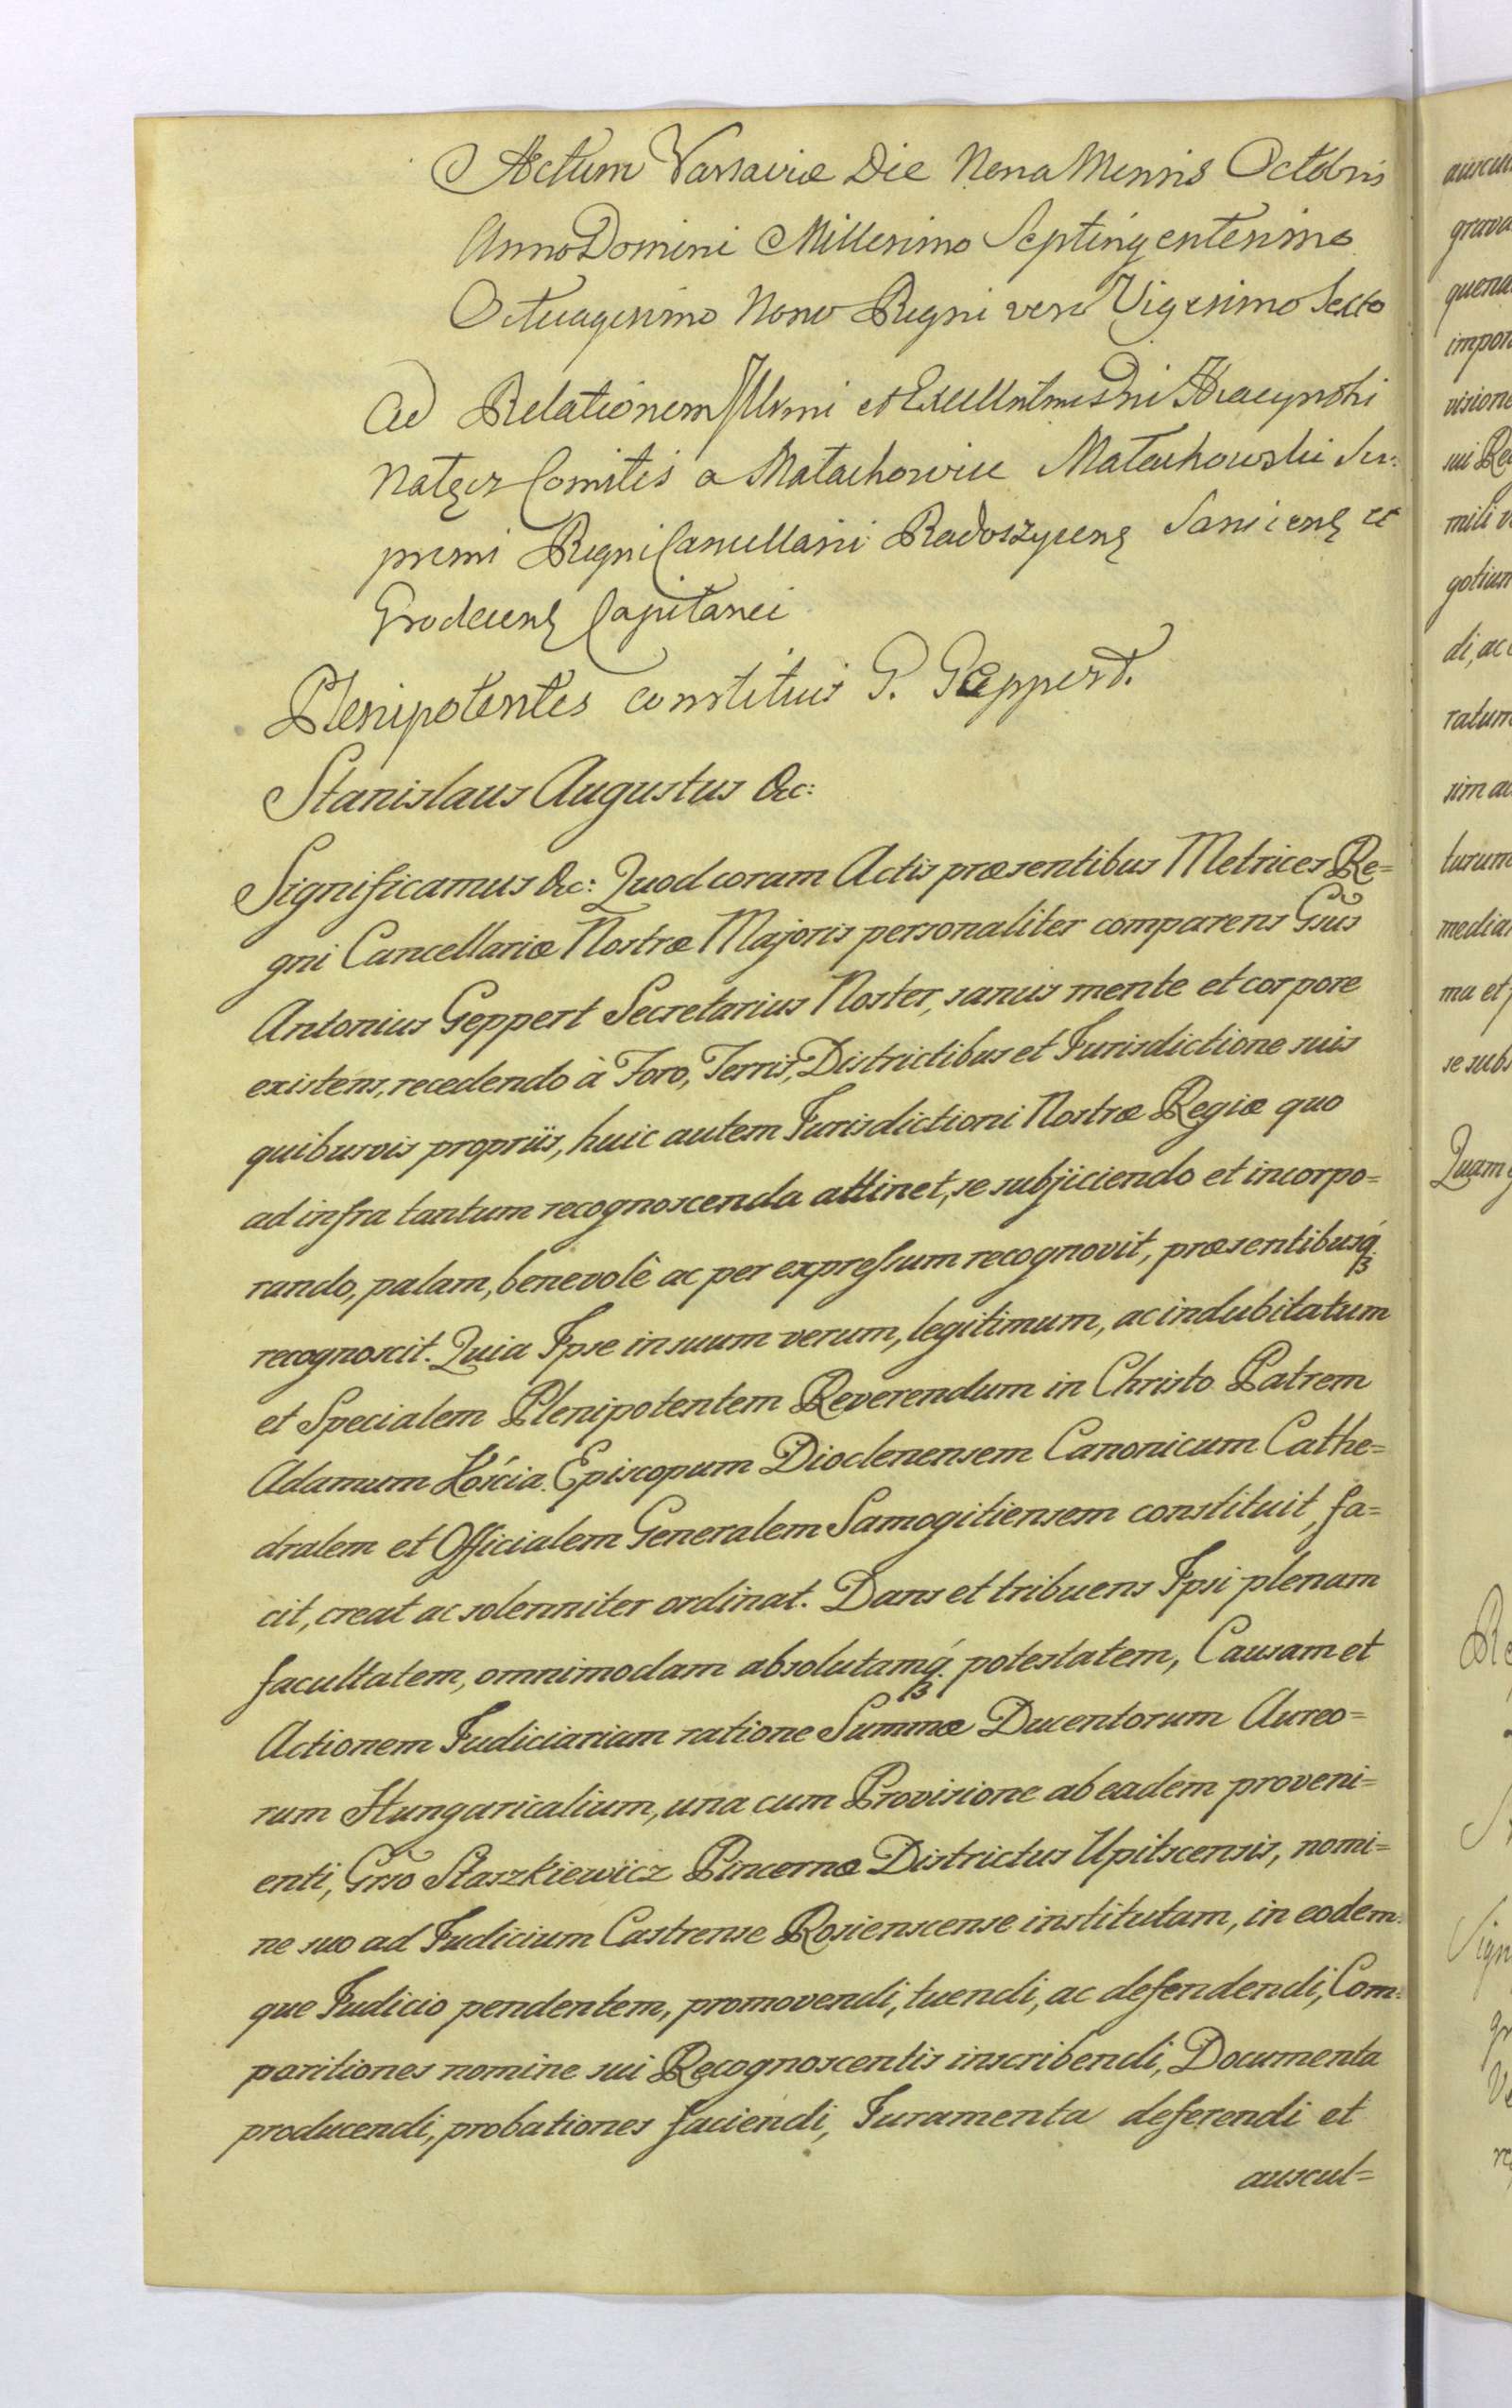 Actum Varsaviæ Die Nona Mensis Octobris
Anno Domini Millesimo Septingentesimo
Octuagesimo Nono Regni vero Vigesimo Sexto
Ad Relationem Illsmi et Excellntmi Dni Hyacynthi
Natęcz Comitis a Małachowice Małachowski Su=
premi Regni Cancellarii Radoszycenę Sanicenę et
Grodecenę Capitanei
Plenipotentes constituit G. Geppert.
Stanislaus Augustus &c:
Significamus &c: Quod coram Actis præsentibus Metrices Re=
gni Cancellariæ Nostræ Majoris personaliter comparens Gsus
Antonius Geppert Secretarius Noster, sanus mente et corpore
existens, recedendo à Foro, Terris, Districtibus et Jurisdictione suis
quibusvis propriis, huic autem Jurisdictioni Nostræ Regiæ quo
ad infra tantum recognoscenda attinet, se subjiciendo et incorpo=
rando, palam, benevolè ac per expressum recognovit, præsentibusq́
recognoscit. Quia Ipse in suum verum, legitimum, ac indubitatum
et Specialem Plenipotentem Reverendum in Christo Patrem
Adamum Kościa. Episcopum Dioclenensem Canonicum Cathe=
dralem et Officialem Generalem Samogitiensem constituit, fa=
cit, creat ac solenniter ordinat. Dans et tribuens Ipsi plenam
facultatem, omnimodam absolutamq́. potestatem, Causam et
Actionem Judiciariam ratione Summæ Ducentorum Aureo=
rum Hungaricalium, una cum Provisione ab eadem proveni=
enti, Grso Staszkiewicz Pincernæ Districtus Upitscensis, nomi=
ne suo ad Judicium Castrense Rosienscense institutam, in eodem=
que Judicio pendentem, promovendi, tuendi, ac defendendi, Com=
paritiones nomine sui Recognoscentis inscribendi, Documenta
producendi, probationes faciendi, Juramenta deferendi et
auscul=